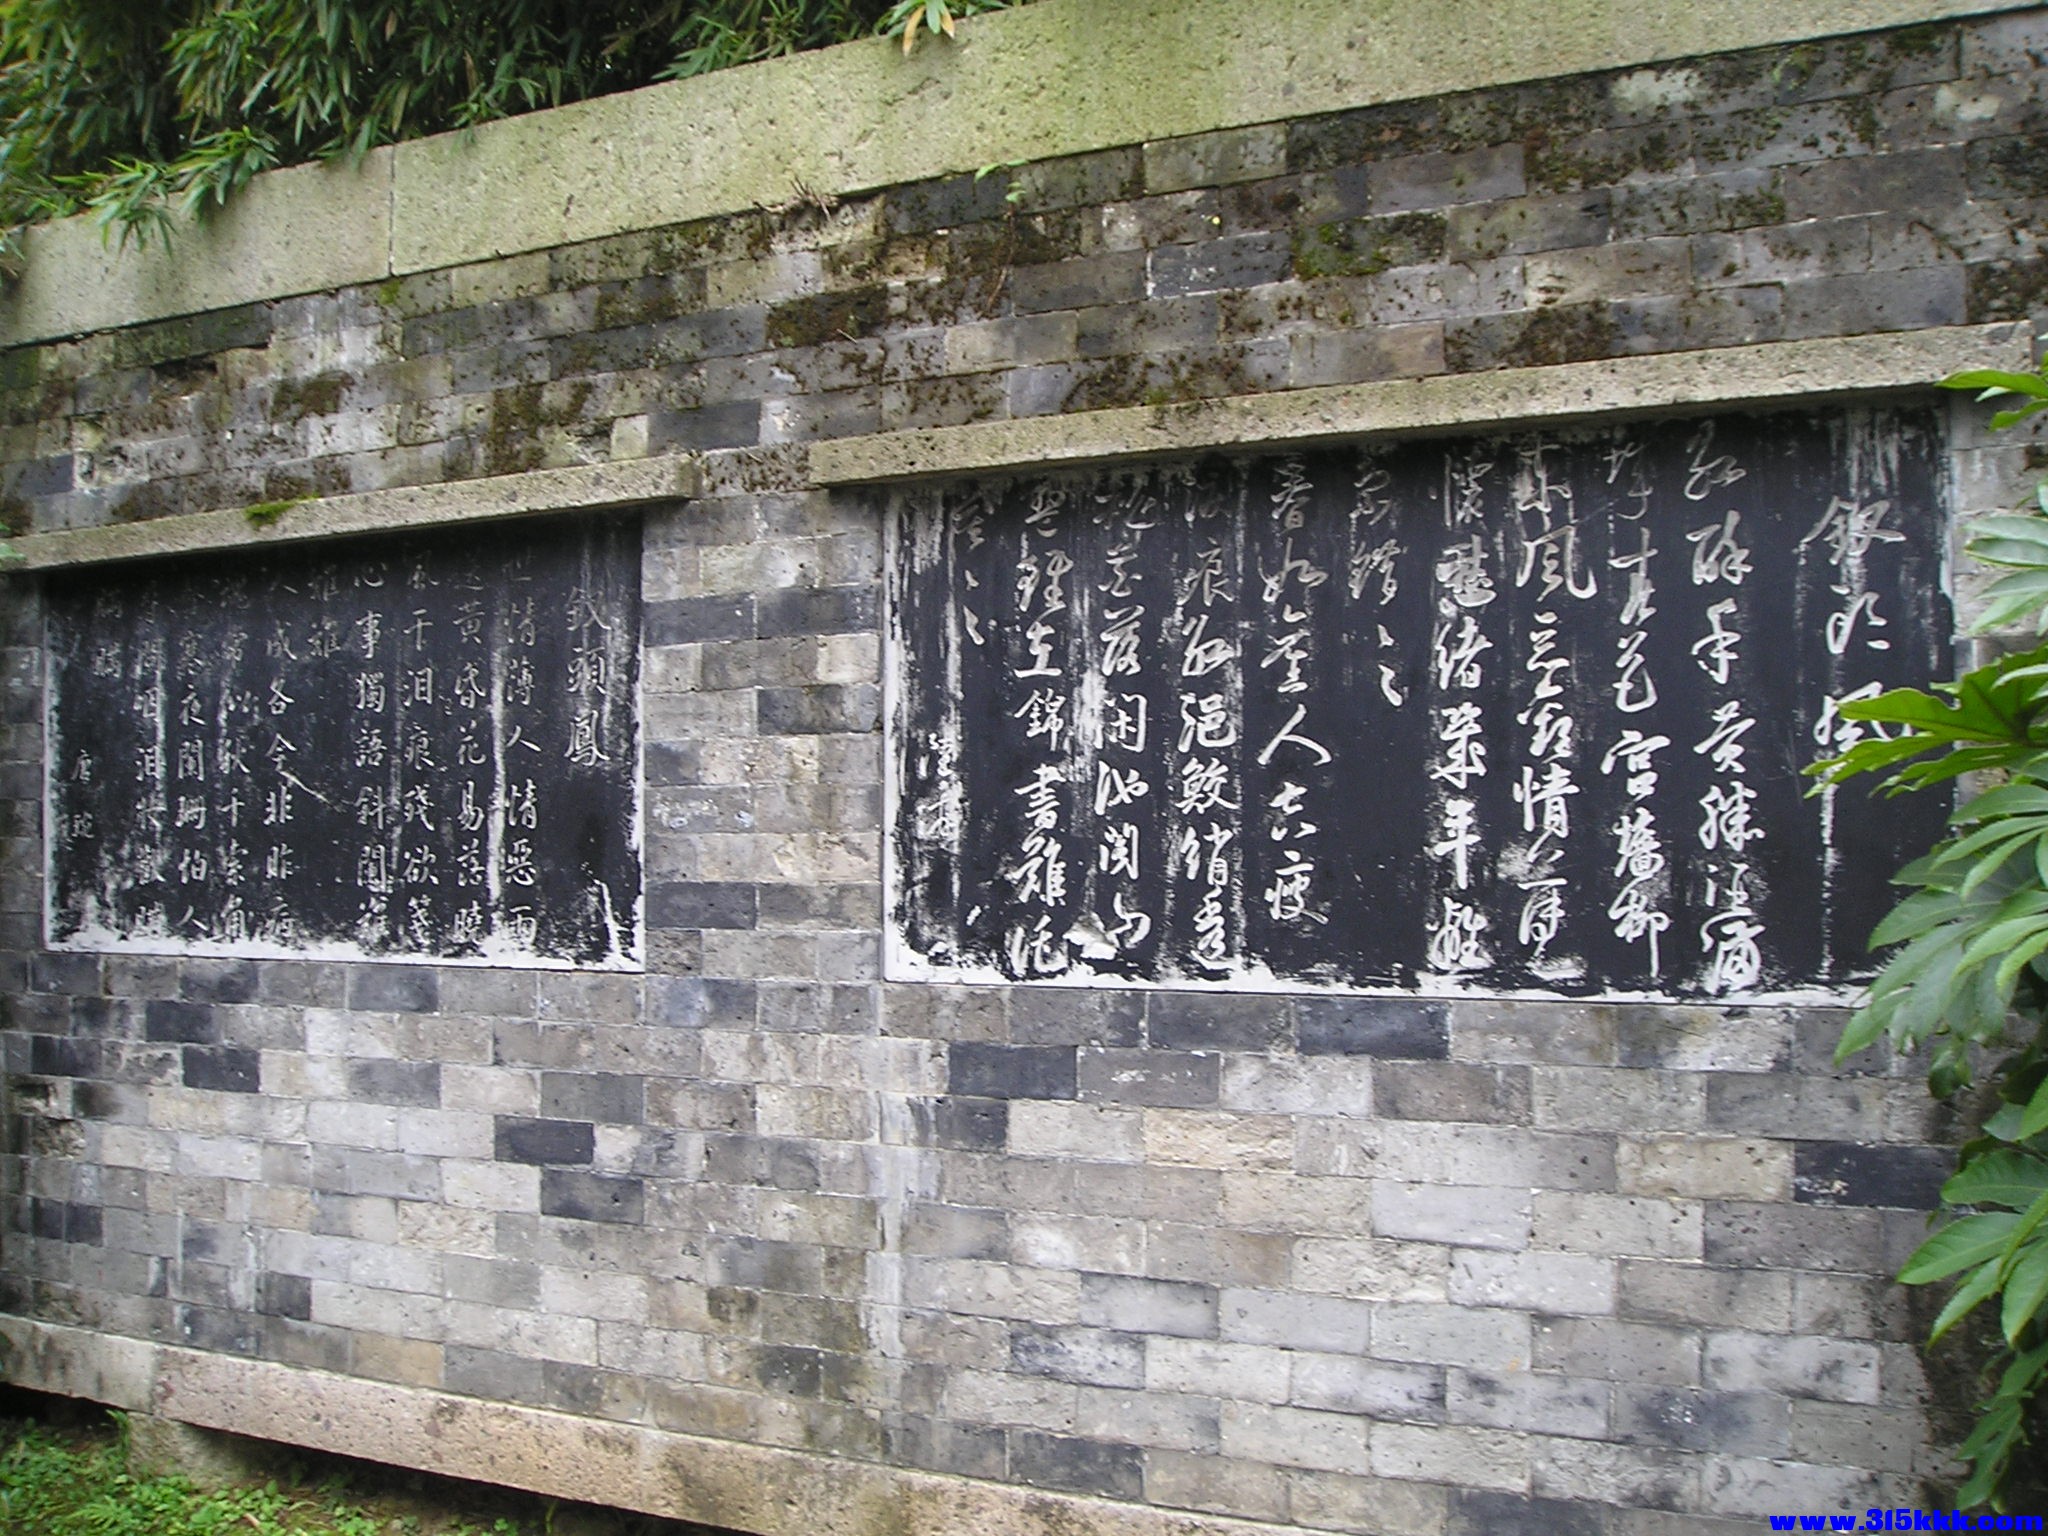 釵頭鳳
紅酥手黃縢酒滿
城春色宮牆柳
東風惡歡情薄一
懷愁緒幾年離
索錯〻〻
春如舊人空瘦
淚痕紅浥鮫綃透
桃花落閑池閣山
盟雖在錦書難托
莫〻〻
陸游
釵頭鳳
世情薄人情惡雨
送黃昏花易落曉
風干泪痕殘欲箋
心事獨語斜闌難
難難
人成各今非昨病
魂常似秋千索角
聲寒夜闌珊怕人
尋問咽泪裝歡瞞
瞞瞞
唐琬
www.315kkk.com